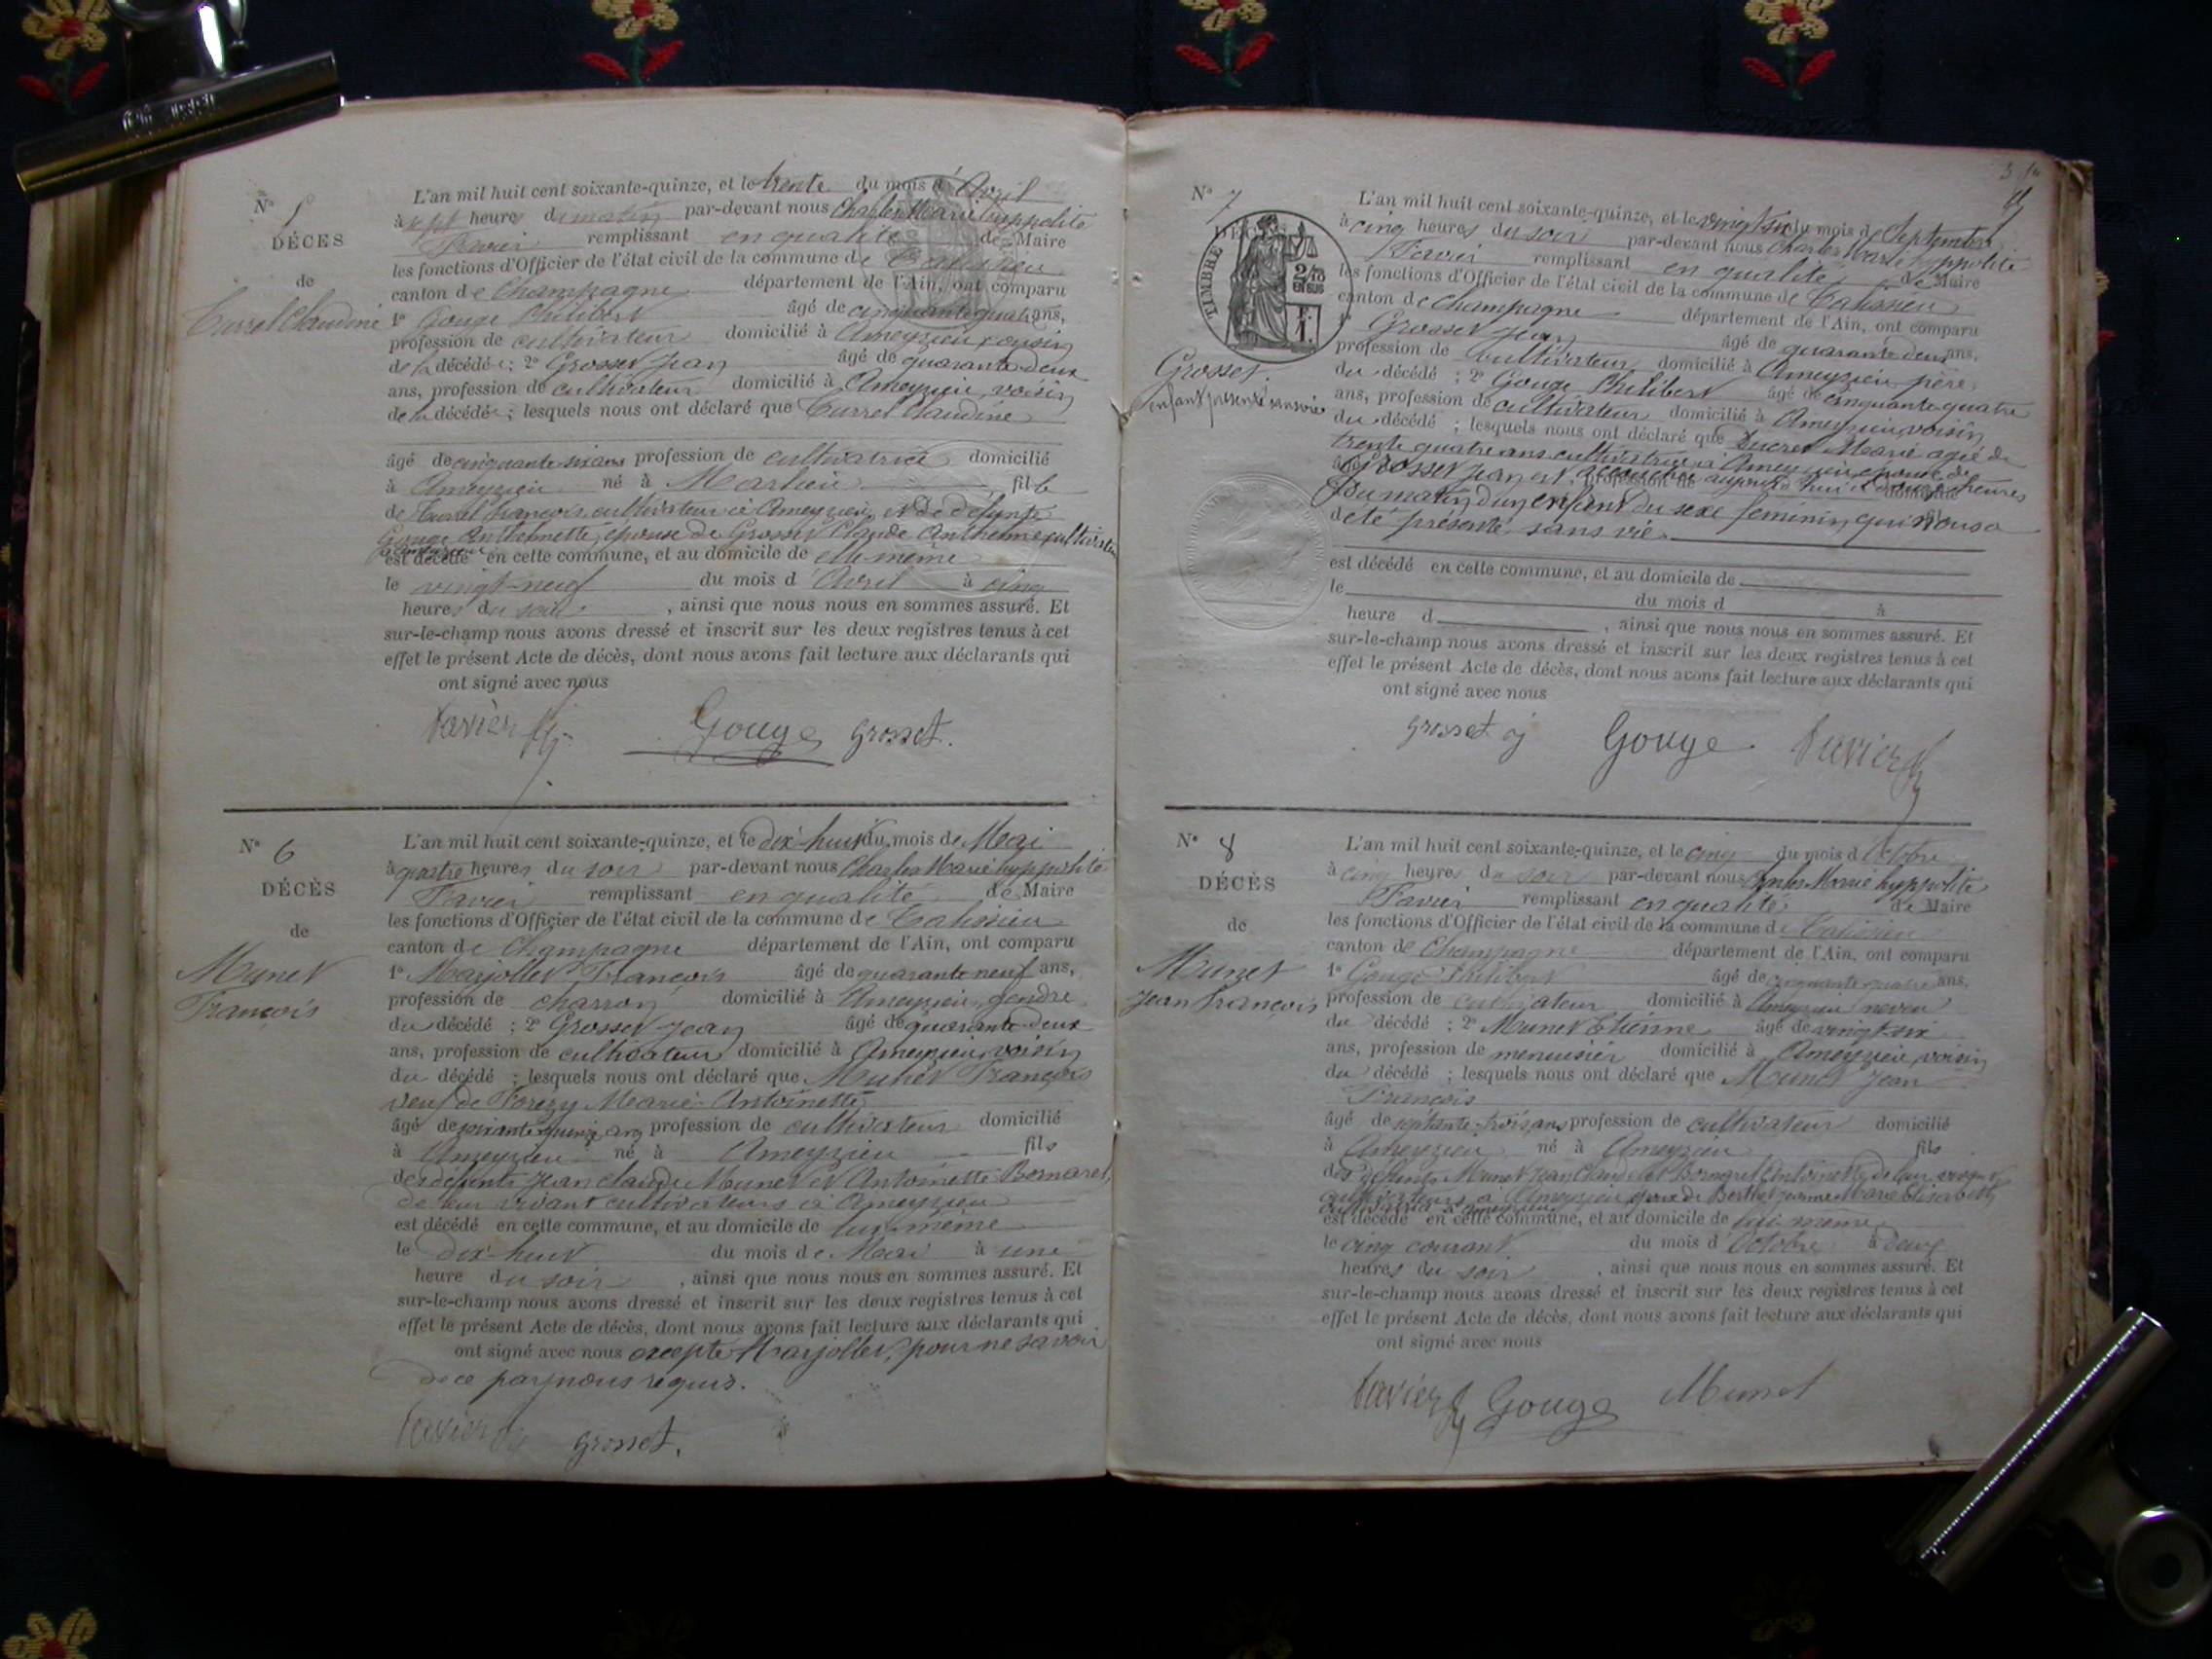 N° 5
DÉCES
de
Turrel Claudine
L'an mil huit cent soixante-quinze, et le trente du mois d'Avril
à sept heures du matin par-devant nous Charles Marie hyppolite
Favier remplissant en qualité de Maire
les fonctions d'Officier de l'état civil de la commune de Talissieu
canton de Champagne département de l'Ain, ont comparu
1° Gouge Philibert âgé de cinquante quatre ans,
profession de cultivateur domicilié à Ameyzieu cousin
de la décédée ; 2° Grosset Jean âgé de quarante deux
ans, profession de cultivateur domicilié à Ameyzieu, voisin
de la décédée ; lesquels nous ont déclaré que Turrel Claudine
âgé de cinquante six ans profession de cultivatrice domicilié
à Ameyzieu né à Marlieu fille
de Turrel françois, cultivateur à Ameyzieu, et de défunte
Gouge Anthelmette, épouse de Grosset Claude Anthelme, cultivateur
à Ameyzieu
est décédé en cette commune, et au domicile de elle même
le vingt-neuf du mois d'Avril à cinq
heures du soir , ainsi que nous nous en sommes assuré. Et
sur-le-champ nous avons dressé et inscrit sur les deux registres tenus à cet
effet le présent Acte de décès, dont nous avons fait lecture aux déclarants qui
ont signé avec nous
favier Gouge grosset.
N° 6
DÉCÈS
de
Munet
François
L'an mil huit cent soixante-quinze, et le dix-huit du mois de Mai
à quatre heures du soir par-devant nous Charles Marie hyppolite
Favier remplissant en qualité de Maire
les fonctions d'Officier de l'état civil de la commune de Talissieu
canton de Champagne département de l'Ain, ont comparu
1° Marjollet François âgé de quarante neuf ans,
profession de charron domicilié à Ameyzieu, gendre
du décédé ; 2° Grosset Jean âgé de quarante-deux
ans, profession de cultivateur domicilié à Ameyzieu, voisin
du décédé ; lesquels nous ont déclaré que Munet François
veuf de Marie-Antoinette
âgé de soixante quinze ans profession de cultivateur domicilié
à Ameyzieu né à Ameyzieu fils
des défunts Jean claude Munet et Antoinette Bornarel,
de leur vivant cultivateurs à Ameyzieu
est décédé en cette commune, et au domicile de lui-même
le dix-huit du mois de Mai à une
heure du soir , ainsi que nous nous en sommes assuré. Et
sur-le-champ nous avons dressé et inscrit sur les deux registres tenus à cet
effet le présent Acte de décès, dont nous avons fait lecture aux déclarants qui
ont signé avec nous excepté Marjollet, pour ne savoir
de ce par nous requis.
favier grosset.
N° 7
TIMBRE
2/10
EN SUS
F.
1.
Grosset.
enfant présenté sans vie
L'an mil huit cent soixante-quinze, et le vingt six du mois de Septembre
à cinq heures du soir par-devant nous Charles Marie hyppolite
Favier remplissant en qualité de Maire
les fonctions d'Officier de l'état civil de la commune de Talissieu
canton de Champagne département de l'Ain, ont comparu
1° Grosset Jean âgé de quarante deux ans,
profession de cultivateur domicilié à Ameyzieu père
du décédé ; 2° Gouge Philibert âgé de cinquante quatre
ans, profession de cultivateur domicilié à Ameyzieu, voisin
du décédé ; lesquels nous ont déclaré que Ducret Marie agée de
trente quatre ans, cultivatrice à Ameyzieu épouse de
Grosset Jean est accouchée aujourd'hui à heures
du matin d'un enfant du sexe feminin, qui nous a
été présenté sans vie.
est décédé en cette commune, et au domicile de
le du mois d à
heure d , ainsi que nous nous en sommes assuré. Et
sur-le-champ nous avons dressé et inscrit sur les deux registres tenus à cet
effet le présent Acte de décès, dont nous avons fait lecture aux déclarants qui
ont signé avec nous
grosset j Gouge favier
N° 8
DÉCÈS
de
Munet
Jean François
L'an mil huit cent soixante-quinze, et le cinq du mois d'Octobre
à cinq heures du soir par-devant nous Charles Marie hyppolite
Favier remplissant en qualité de Maire
les fonctions d'Officier de l'état civil de la commune de Talissieu
canton de Champagne département de l'Ain, ont comparu
1° Gouge Philibert âgé de cinquante quatre ans,
profession de cultivateur domicilié à Ameyzieu neveu
du décédé ; 2° Munet Etienne âgé de vingt-six
ans, profession de menuisier domicilié à Ameyzieu, voisin
du décédé ; lesquels nous ont déclaré que Munet Jean
François
âgé de septante-trois ans profession de cultivateur domicilié
à Ameyzieu né à Ameyzieu fils
des défunts Munet Jean Claude et Bornarel Antoinette de leur vivant
cultivateurs à Ameyzieu époux de Berthet Jeanne Marie Elisabeth,
cultivatrice à Ameyzieu
est décédé en cette commune, et au domicile de lui même
le cinq courant du mois d'Octobre à deux
heures du soir , ainsi que nous nous en sommes assuré. Et
sur-le-champ nous avons dressé et inscrit sur les deux registres tenus à cet
effet le présent Acte de décès, dont nous avons fait lecture aux déclarants qui
ont signé avec nous
favier Gouge Munet